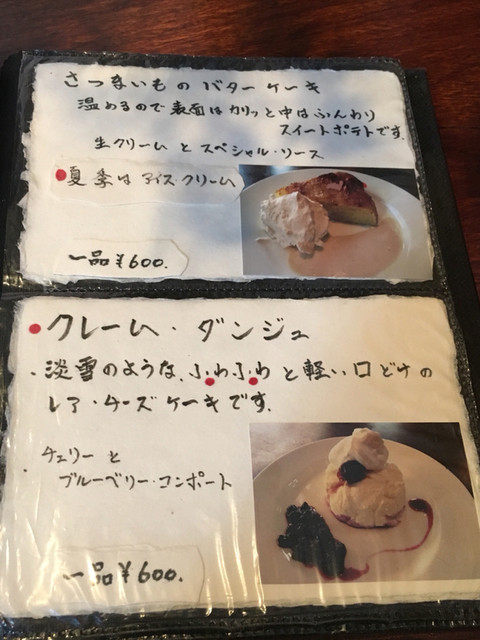 さつまいものバターケーキ
温めるので表面はカリッと中はふんわり
スイートポテトです。
生クリームとスペシャル・ソース
夏季はアイス・クリーム
一品¥600.
クレーム・ダンジュ
・淡雪のような、ふわふわと軽い口どけの
レア・チーズケーキです。
チェリーと
ブルーベリー・コンポート
一品¥600.